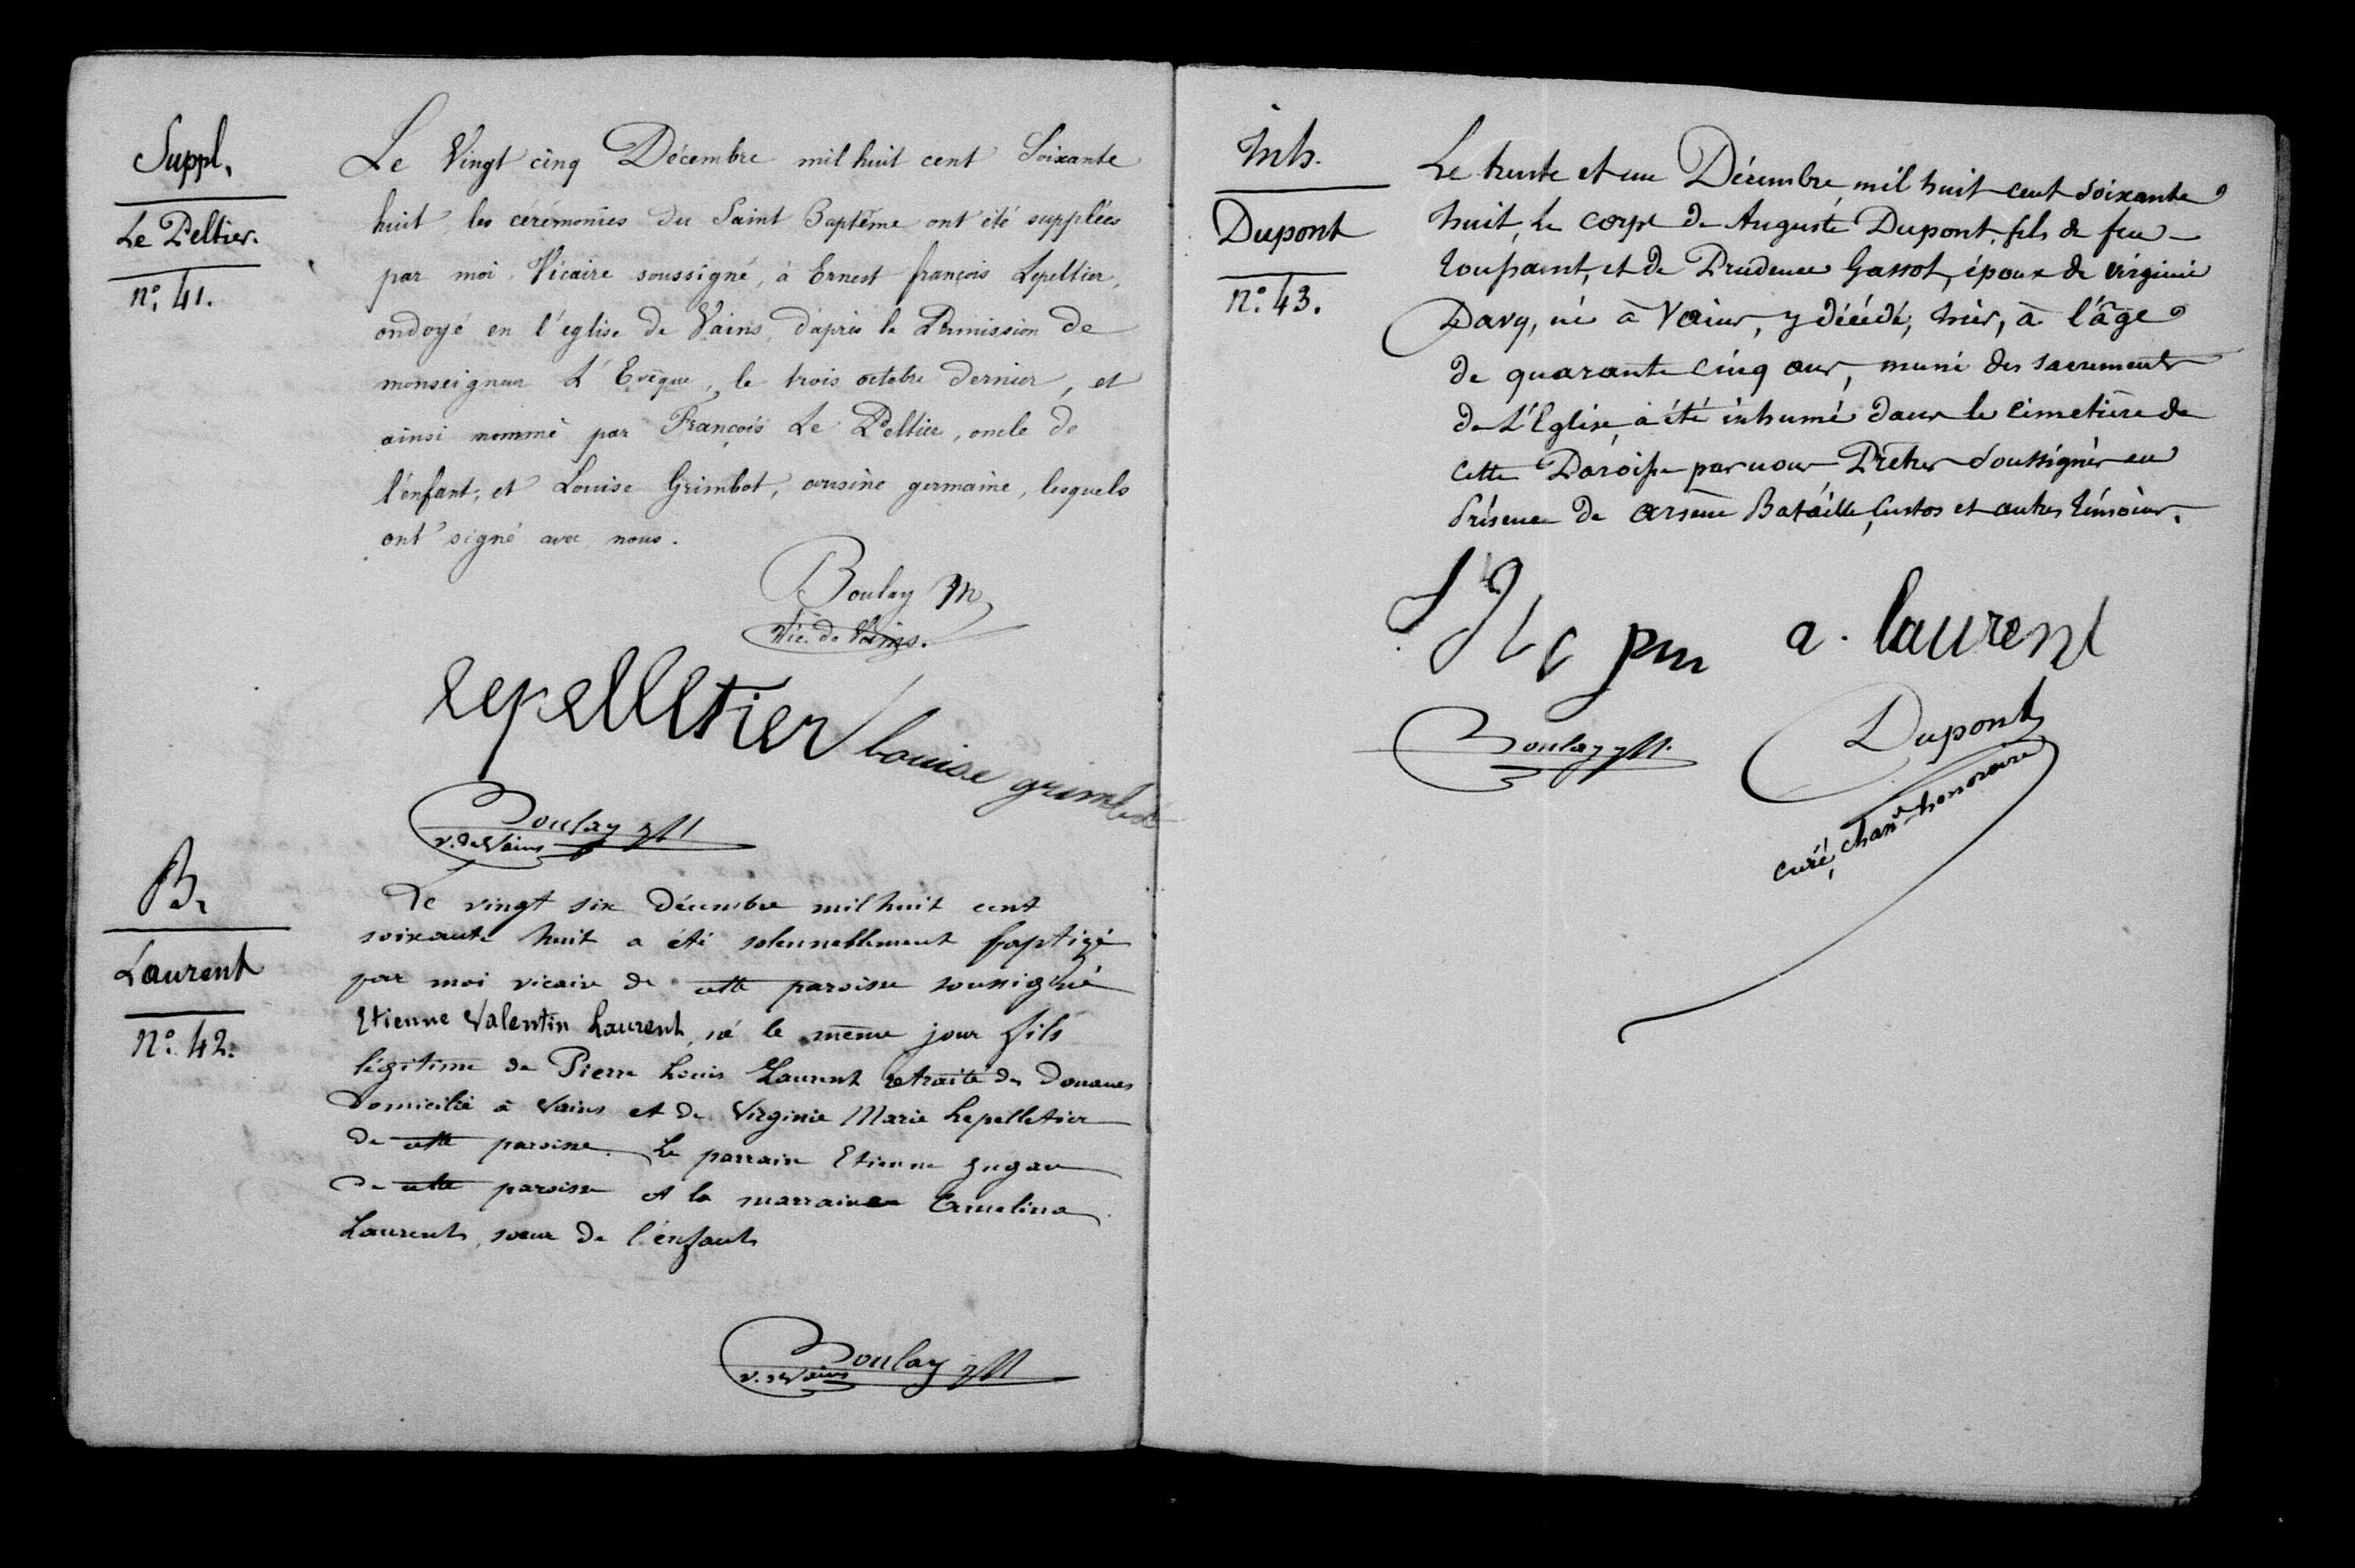 Suppl.
Le Peltier.
n°. 41.
Le Vingt cinq Décembre mil huit cent Soixante
huit, les cérémonies du Saint Baptême ont été supplées
par moi, Vicaire soussigné, à Ernest françois Lepeltier,
ondoyé en l'eglise de Vains, d'après la Permission de
monseigneur L'Evêque, le trois octobre dernier, et
ainsi nommé par François Le Peltier, oncle de
l'enfant, et Louise Grimbot, cousine germaine, lesquels
ont signé avec nous.
Boulay
Vic. de Vains.
Lepelletier
Louise grimbot
Boulay
v. de Vains
B.
Laurent
N°. 42.
Le vingt six Décembre mil huit cent
soixante huit a été solennellement baptizé
par moi vicaire de cette paroisse soussigné
Etienne Valentin Laurent, né le même jour fils
légitime de Pierre Louis Laurent retraité des Douanes
Domicilié à Vains et de Virginie Marie Lepelletier
de cette paroisse. Le parrain Etienne
de cette paroisse et la marraine
Laurent, soeur de l'enfant
Boulay
v. de Vains
Inh.
Dupont
N°. 43.
Le trente et un Décembre mil huit cent soixante
huit, le corps de Auguste Dupont, fils de feu
Toussaint, et de Prudence Gassot, époux de virginie
Davy, né à Vains, y décédé, hier, à l'âge
de quarante cinq ans, muni des sacrements
de L'Eglise, a été inhumé dans le cimetière de
cette Paroisse par nous Prêtres soussignés en
présence de arsène Bataille, Custos et autres témoins.
a. laurent
Boulay
Dupont
curé, chan^e honoraire